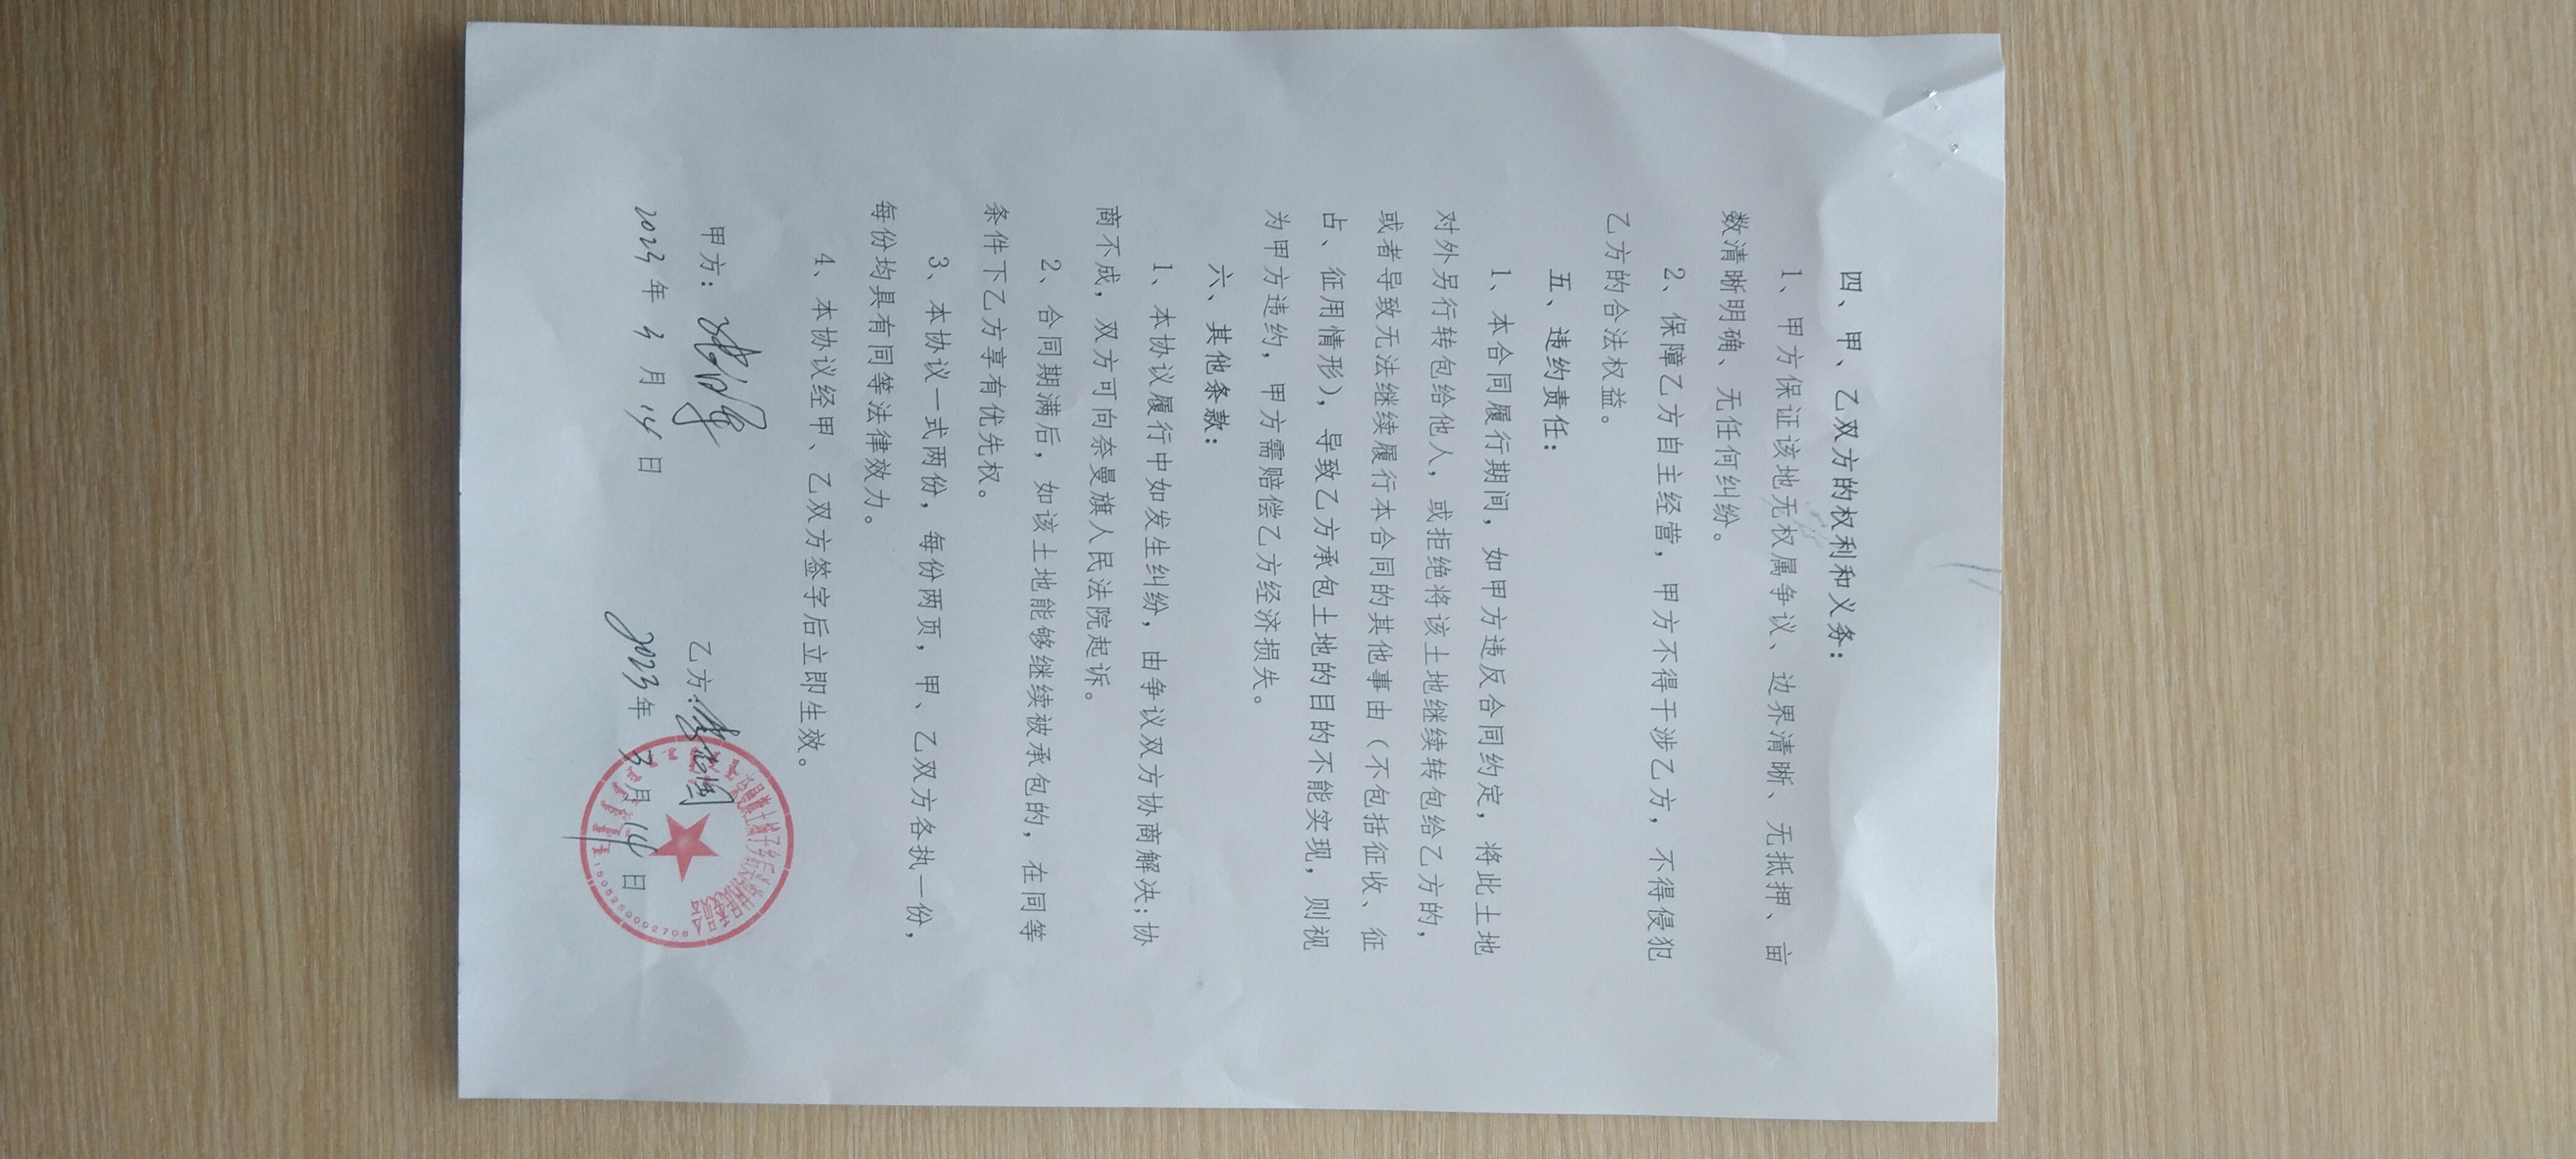 四、甲、乙双方的权利和义务：
1、甲方保证该地无权属争议、边界清晰、无抵押、亩
数清晰明确、无任何纠纷。
2、保障乙方自主经营，甲方不得干涉乙方，不得侵犯
乙方的合法权益。
五、违约责任：
1、本合同履行期间，如甲方违反合同约定，将此土地
对外另行转包给他人，或拒绝将该土地继续转包给乙方的，
或者导致无法继续履行本合同的其他事由（不包括征收、征
占、征用情形），导致乙方承包土地的目的不能实现，则视
为甲方违约，甲方需赔偿乙方经济损失。
六、其他条款：
1、本协议履行中如发生纠纷，由争议双方协商解决;协
商不成，双方可向奈曼旗人民法院起诉。
2、合同期满后，如该土地能够继续被承包的，在同等
条件下乙方享有优先权。
3、本协议一式两份，每份两页，甲、乙双方各执一份，
每份均具有同等法律效力。
4、本协议经甲、乙双方签字后立即生效。
甲方： 乙方：
2023年3月14日 2023年3月14日
1505250002708